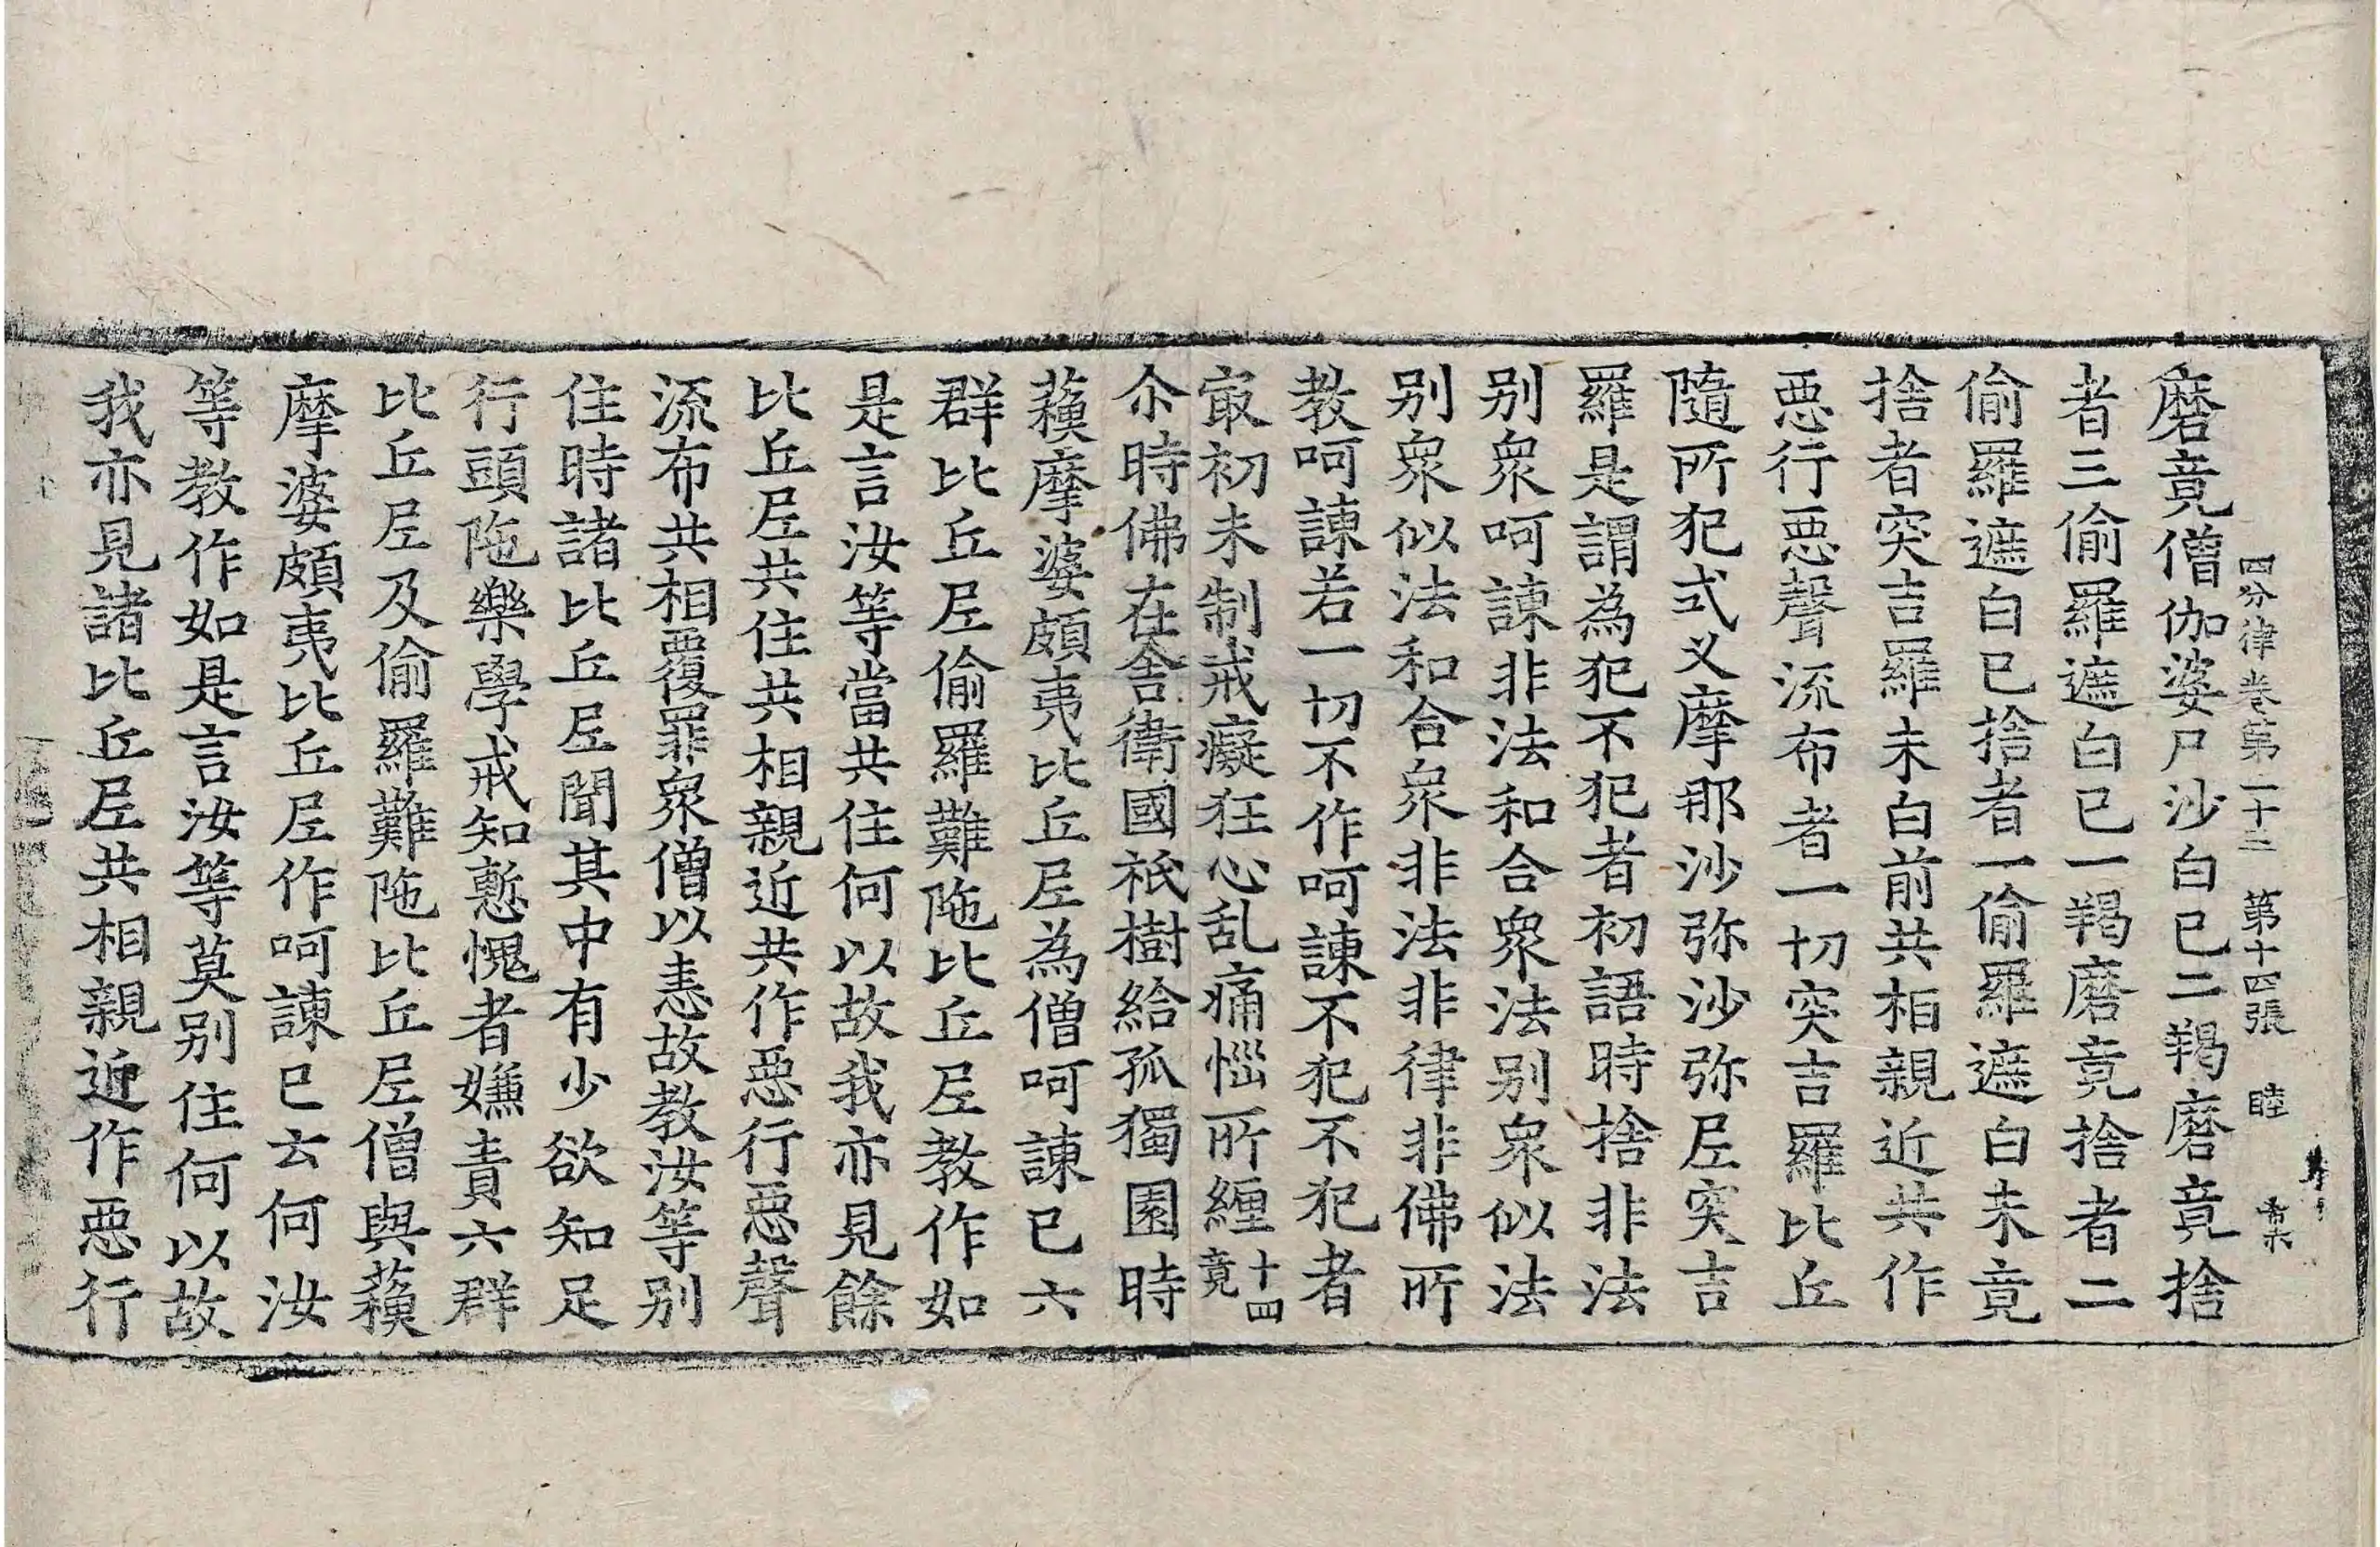 四分律卷第二十三　第十四張　睦
磨竟僧伽婆尸沙白已二羯磨竟捨
者三偷羅遮白已一羯磨竟捨者二
偷羅遮白已捨者一偷羅遮白未竟
捨者突吉羅未白前共相親近共作
惡行惡聲流布者一切突吉羅比丘
隨所犯式义摩那沙弥沙弥尼突吉
羅是謂為犯不犯者初語時捨非法
別眾呵諫非法和合眾法別眾似法
別眾似法和合眾非法非律非佛所
教呵諫若一切不作呵諫不犯不犯者
㝡初未制戒癡狂心乱痛惱所纏十四竟
尒時佛在舍衛國祇樹給孤獨園時
蘓摩婆頗夷比丘尼為僧呵諫已六
群比丘尼偷羅難陁比丘尼教作如
是言汝等當共住何以故我亦見餘
比丘尼共住共相親近共作惡行惡聲
流布共相覆罪眾僧以恚故教汝等別
住時諸比丘尼聞其中有少欲知足
行頭陁樂學戒知慙愧者嫌責六群
比丘尼及偷羅難陁比丘尼僧與蘓
摩婆頗夷比丘尼作呵諫已云何汝
等教作如是言汝等莫別住何以故
我亦見諸比丘尼共相親近作惡行